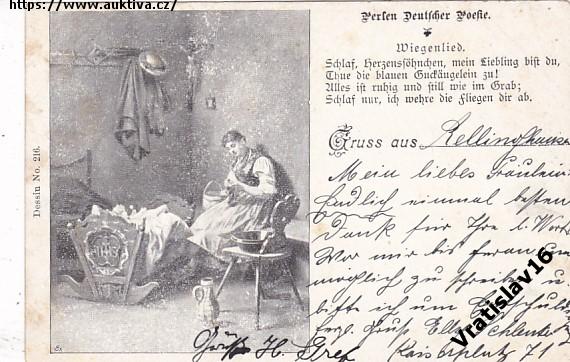 https://www.auktiva.cz/
Perlen Deutscher Poesie.
Wiegenlied.
Schlaf, Herzenssöhnchen, mein Liebling bist du,
Thue die blauen Guckäugelein zu!
Alles ist ruhig und still wie im Grab;
Schlaf nur, ich wehre die Fliegen dir ab.
Gruss aus Kellinghusen
Mein liebes Fräulein
Endlich einmal besten
Dank für Ihre l. Worte
War mir bis
unmöglich zu schreiben u
bitte ich um
Gruss
Grüße H.
Dessin No. 216.
Vratislav16